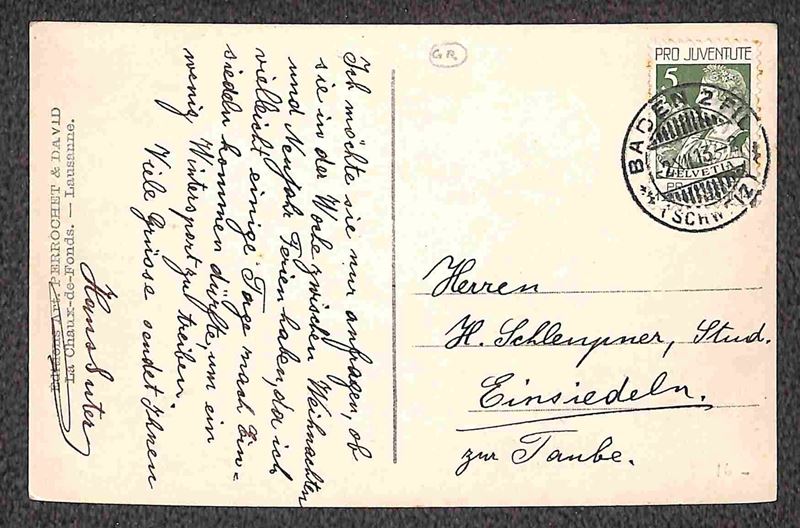 Ich möchte sie nur anfragen, ob
sie in der Woche zwischen Weihnachten
und Neujahr Ferien haben, da ich
vielleicht einige Tage nach Ein-
siedeln kommen dürfte, um ein
wenig Wintersport zu treiben.
Viele Grüsse sendet Ihnen
Hans Suter
Editions Art. PERROCHET & DAVID
La Chaux-de-Fonds. — Lausanne.
GR
PRO JUVENTUTE
5
HELVETIA
BADEN 2 FIL.
(SCHWEIZ)
Herren
H. Schleupner, Stud.
Einsiedeln.
zur Taube.
16 -